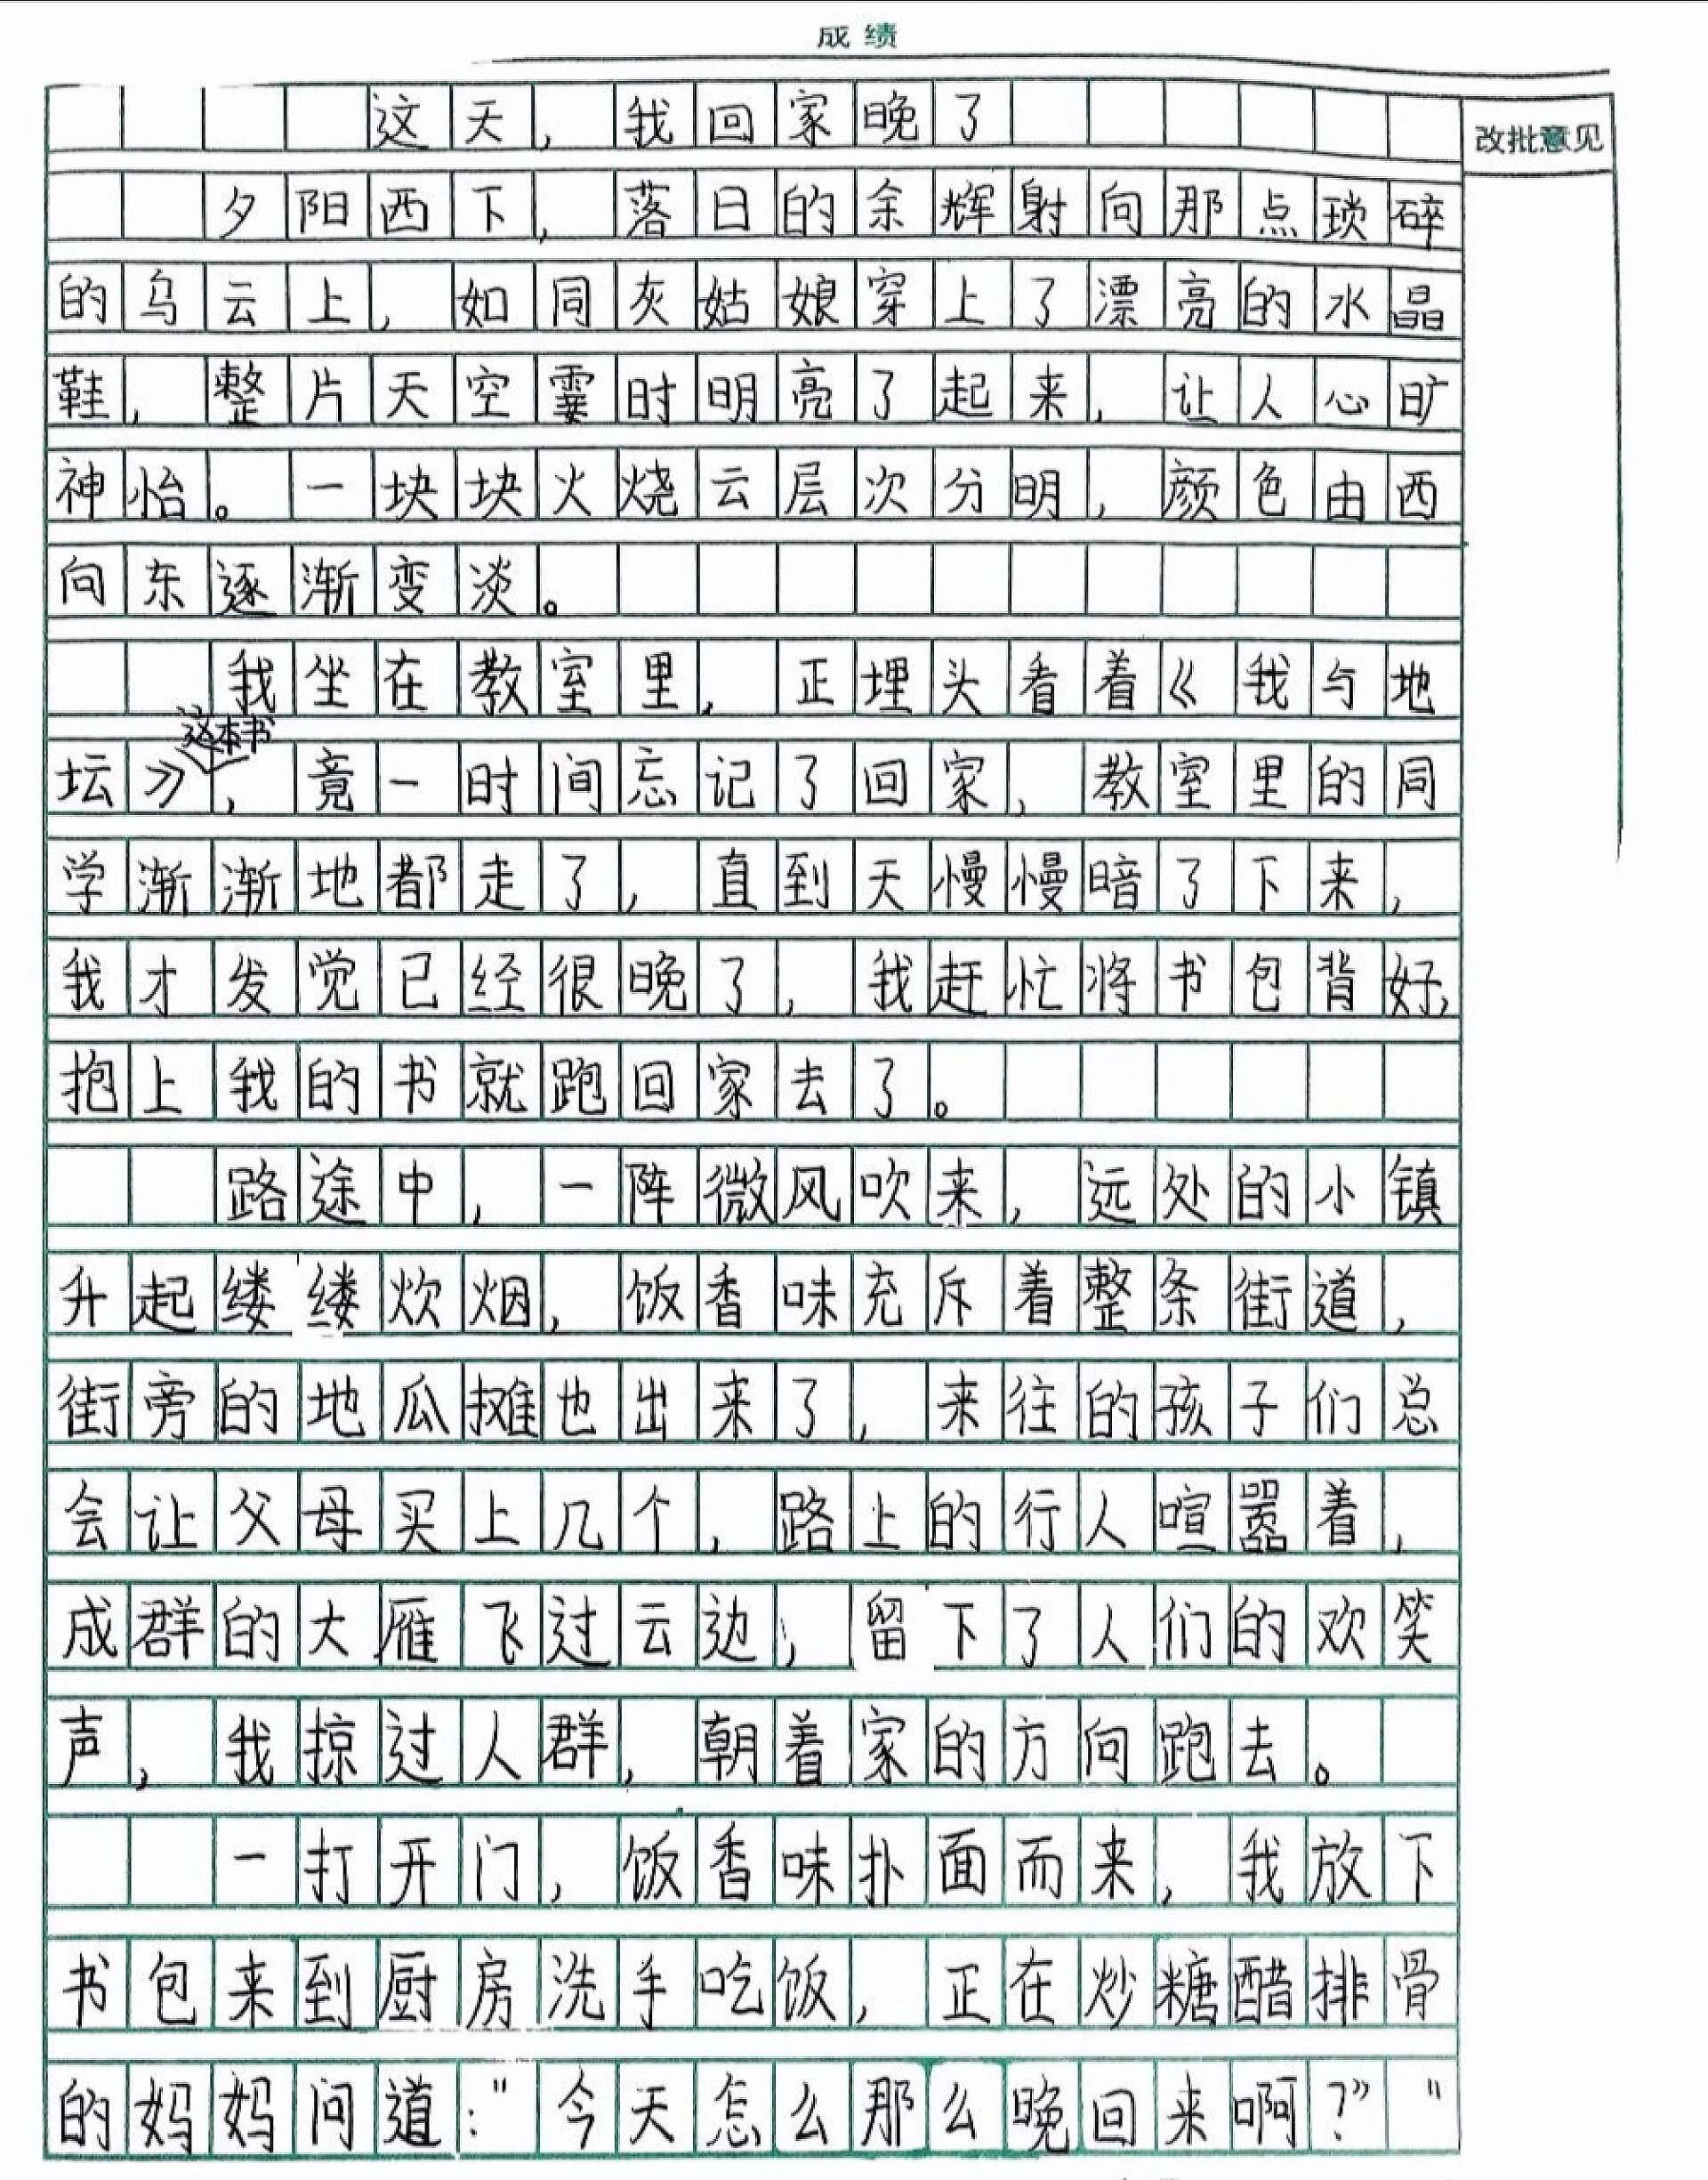 成绩
这天，我回家晚了
改批意见
夕阳西下，落日的余辉射向那点琐碎
的乌云上，如同灰姑娘穿上了漂亮的水晶
鞋，整片天空霎时明亮了起来，让人心旷
神怡。一块块火烧云层次分明，颜色由西
向东逐渐变淡。
我坐在教室里，正埋头看着《我与地
坛》这本书，竟一时间忘记了回家，教室里的同
学渐渐地都走了，直到天慢慢暗了下来，
我才发觉已经很晚了，我赶忙将书包背好，
抱上我的书就跑回家去了。
路途中，一阵微风吹来，远处的小镇
升起缕缕炊烟，饭香味充斥着整条街道，
街旁的地瓜摊也出来了，来往的孩子们总
会让父母买上几个，路上的行人喧嚣着，
成群的大雁飞过云边，留下了人们的欢笑
声，我掠过人群，朝着家的方向跑去。
一打开门，饭香味扑面而来，我放下
书包来到厨房洗手吃饭，正在炒糖醋排骨
的妈妈问道："今天怎么那么晚回来啊？""